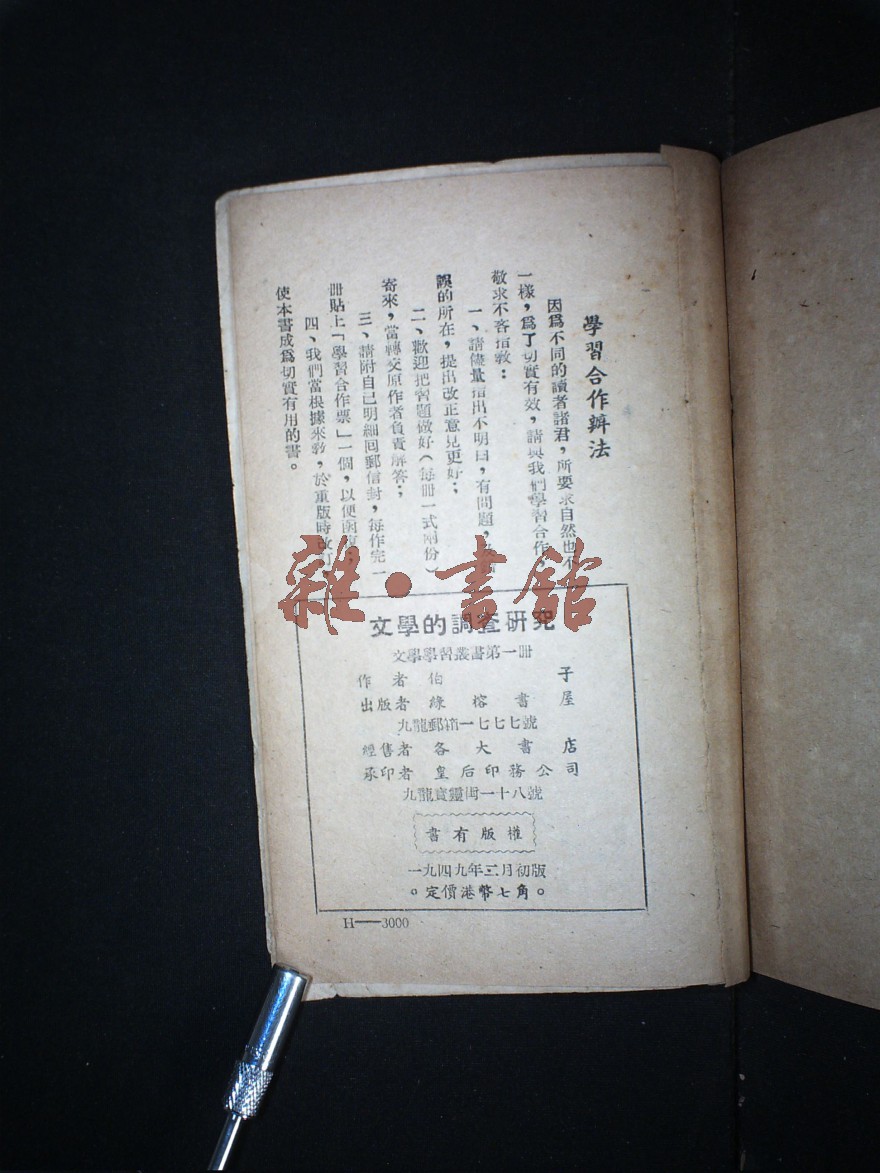 學習合作辦法
因爲不同的讀者諸君，所要求自然也不
一樣，爲了切實有效，請與我們學習合作，
敬求不吝指敎：
一、請儘量指出不明白，有問題，
誤的所在，提出改正意見更好；
二、歡迎把習題做好（每冊一式兩份）
寄來，當轉交原作者負責解答；
三、請附自己明細囘郵信封，每作完一
冊貼上「學習合作票」一個，以便函復；
四、我們當根據來敎，於重版時改訂，
使本書成爲切實有用的書。
雜·書館
文學的調查研究
文學學習叢書第一冊
作者 伯子
出版者 綠榕書屋
九龍郵箱一七七七號
經售者 各大書店
承印者 皇后印務公司
九龍寶靈街一十八號
書有版權
一九四九年三月初版
。定價港幣七角。
H——3000